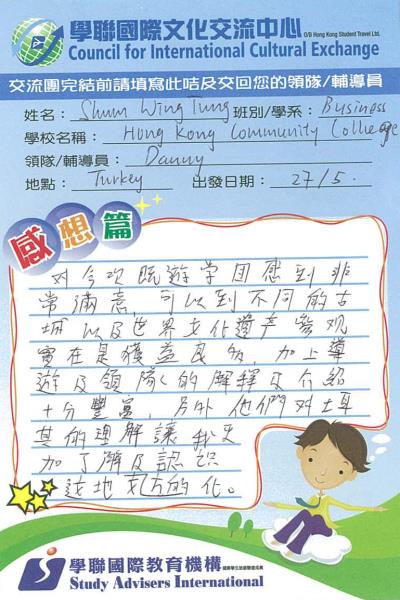 學聯國際文化交流中心 O/B Hong Kong Student Travel Ltd.
Council for International Cultural Exchange
交流團完結前請填寫此咭及交回您的領隊/輔導員
姓名： Shum Wing Tung 班別/學系： Business
學校名稱： Hong Kong Community College
領隊/輔導員： Danny
地點： Turkey 出發日期： 27/5.
感想篇
对今次旣遊学团感到非
常滿意，可以到不同的古
城以及世界文化遺产參观
實在是獲益良多，加上導
遊及領隊的解釋及介紹
十分豐富，另外他們对土耳
其的理解讓我更
加了解及認識
这地方的化。
學聯國際教育機構
Study Advisers International